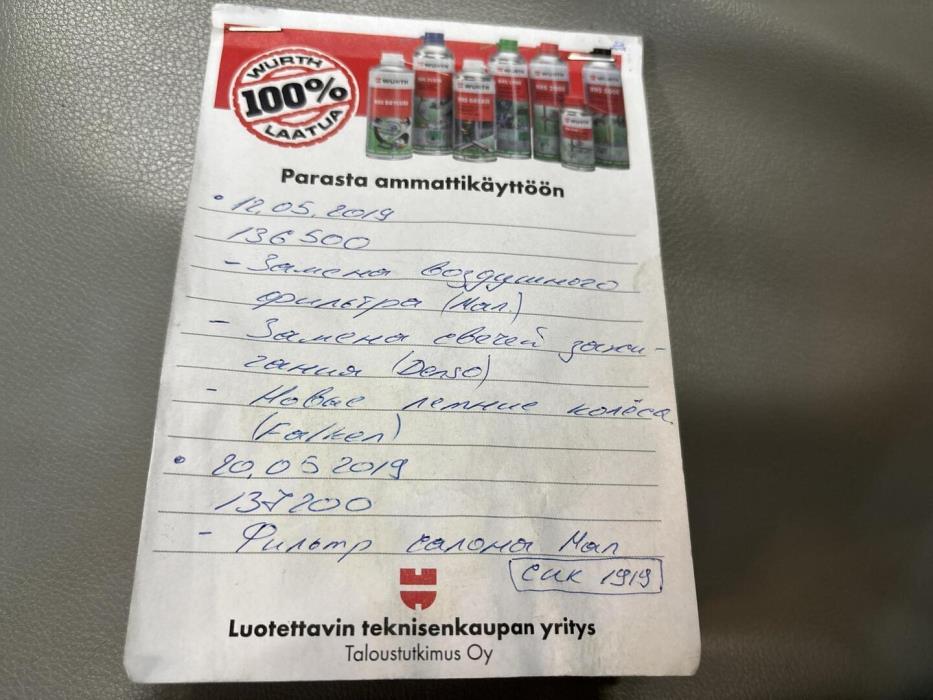 WURTH
100%
LAATUA
WURTH
Parasta ammattikäyttöön
• 12.05.2019
136500
- Замена воздушного
фильтра (Mал.)
- Замена свечей зажи-
гания (Denso)
- Новые летние колёса
(Falken)
• 20.05 2019
137200
- Фильтр салона Мал
СИК 1919
Luotettavin teknisenkaupan yritys
Taloustutkimus Oy